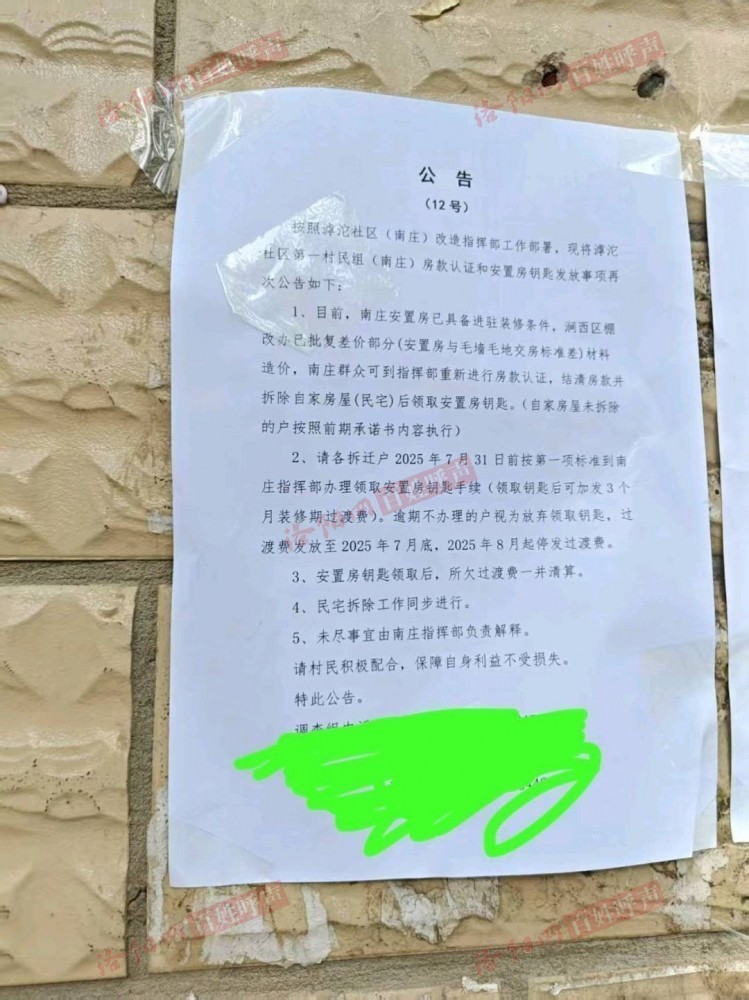 公 告
（12号）
按照滹沱社区（南庄）改造指挥部工作部署，现将滹沱
社区第一村民组（南庄）房款认证和安置房钥匙发放事项再
次公告如下：
1、目前，南庄安置房已具备进驻装修条件，涧西区棚
改办已批复差价部分(安置房与毛墙毛地交房标准差)材料
造价，南庄群众可到指挥部重新进行房款认证，结清房款并
拆除自家房屋(民宅)后领取安置房钥匙。（自家房屋未拆除
的户按照前期承诺书内容执行）
2、请各拆迁户 2025 年 7 月 31 日前按第一项标准到南
庄指挥部办理领取安置房钥匙手续（领取钥匙后可加发 3 个
月装修期过渡费）。逾期不办理的户视为放弃领取钥匙，过
渡费发放至 2025 年 7 月底，2025 年 8 月起停发过渡费。
3、安置房钥匙领取后，所欠过渡费一并清算。
4、民宅拆除工作同步进行。
5、未尽事宜由南庄指挥部负责解释。
请村民积极配合，保障自身利益不受损失。
特此公告。
调查组电话
洛阳网百姓呼声
洛阳网百姓呼声
洛阳网百姓呼声
洛阳网百姓呼声
洛阳网百姓呼声